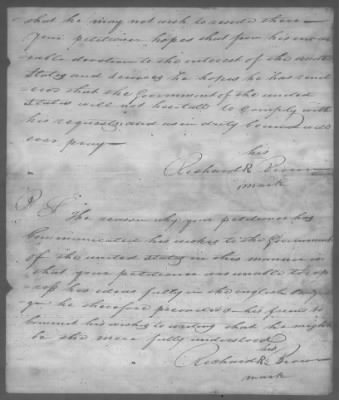 that he may not wish to reside there —
your petitioner hopes that from his invar-
iable devotion to the interest of the united
States and services he hopes he has rend-
ered that the Government of the united
States will not hesitate to comply with
his request, and as in duty bound will
ever pray —
his
Richard R Brown
mark
P. S. The reason why your petitioner has
communicated his wishes to the Government
of the united states in this manner is
that your petitioner is unable to
his ideas fully in the english
he therefore his friend to
commit his wishes to writing that he might
be the more fully understood
his
Richard R Brown
mark